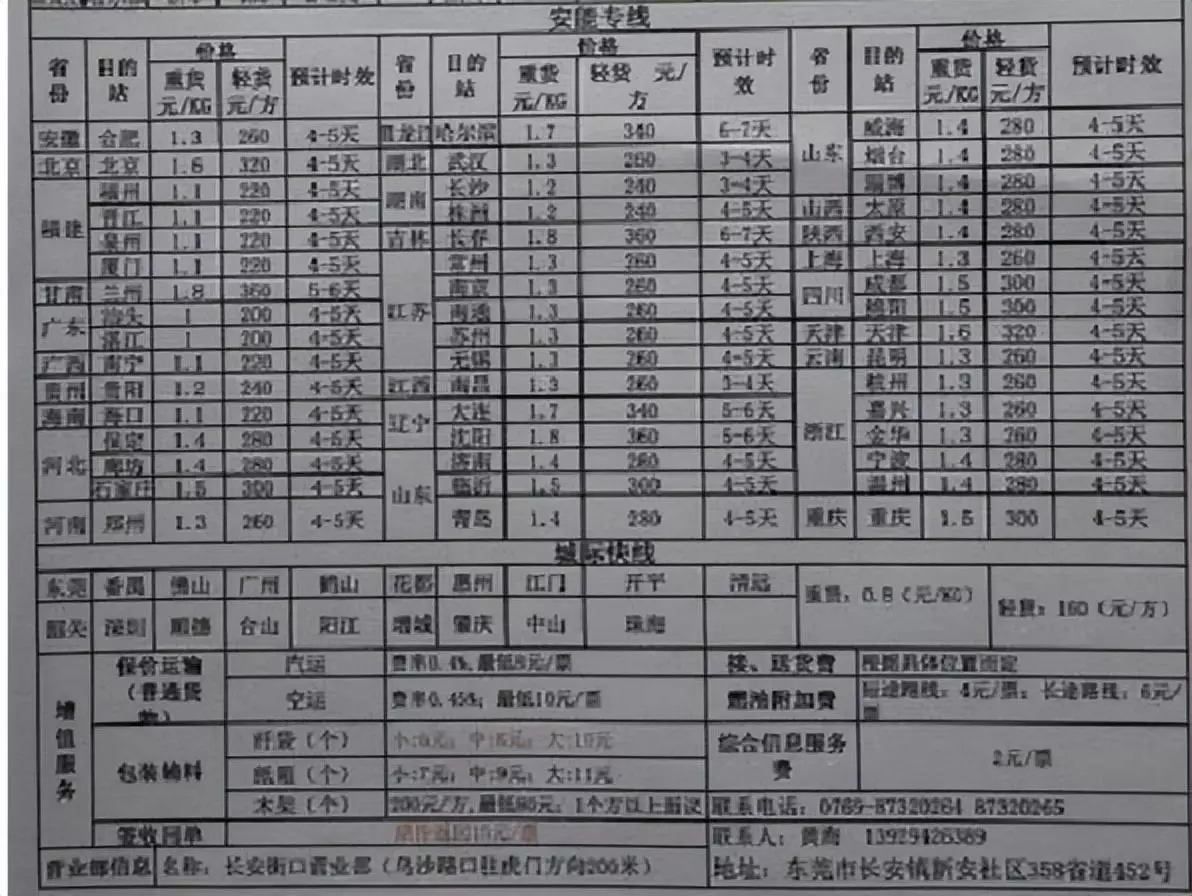 安能专线
省份 目的站 价格 预计时效 省份 目的站 价格 预计时效 省份 目的站 价格 预计时效
重货元/KG 轻货元/方 重货元/KG 轻货 元/方 重货元/KG 轻货元/方
安徽 合肥 1.3 260 4-5天 黑龙江 哈尔滨 1.7 340 6-7天 山东 威海 1.4 280 4-5天
北京 北京 1.6 320 4-5天 湖北 武汉 1.3 260 3-4天 烟台 1.4 280 4-5天
福建 福州 1.1 220 4-5天 湖南 长沙 1.2 240 3-4天 淄博 1.4 280 4-5天
晋江 1.1 220 4-5天 株洲 1.2 240 4-5天 山西 太原 1.4 280 4-5天
泉州 1.1 220 4-5天 吉林 长春 1.8 360 6-7天 陕西 西安 1.4 280 4-5天
厦门 1.1 220 4-5天 江苏 常州 1.3 260 4-5天 上海 上海 1.3 260 4-5天
甘肃 兰州 1.8 360 5-6天 南京 1.3 260 4-5天 四川 成都 1.5 300 4-5天
广东 汕头 1 200 4-5天 南通 1.3 260 4-5天 绵阳 1.5 300 4-5天
湛江 1 200 4-5天 苏州 1.3 260 4-5天 天津 天津 1.6 320 4-5天
广西 南宁 1.1 220 4-5天 无锡 1.3 260 4-5天 云南 昆明 1.3 260 4-5天
贵州 贵阳 1.2 240 4-5天 江西 南昌 1.3 260 3-4天 浙江 杭州 1.3 260 4-5天
海南 海口 1.1 220 4-5天 辽宁 大连 1.7 340 5-6天 嘉兴 1.3 260 4-5天
河北 保定 1.4 280 4-5天 沈阳 1.8 360 5-6天 金华 1.3 260 4-5天
廊坊 1.4 280 4-5天 山东 济南 1.4 280 4-5天 宁波 1.4 280 4-5天
石家庄 1.5 300 4-5天 临沂 1.5 300 4-5天 温州 1.4 280 4-5天
河南 郑州 1.3 260 4-5天 青岛 1.4 280 4-5天 重庆 重庆 1.5 300 4-5天
城际快线
东莞 番禺 佛山 广州 鹤山 花都 惠州 江门 开平 清远 重货：0.8（元/KG） 轻货：160（元/方）
韶关 深圳 顺德 台山 阳江 增城 肇庆 中山 珠海
增值服务 保价运输（普通货物） 汽运 费率0.4%,最低8元/票 接、送货费 根据具体位置而定
空运 费率0.45%；最低10元/票 燃油附加费 短途路线：4元/票；长途路线：6元/票
包装辅料 纤袋（个） 小:6元；中:8元；大:10元 综合信息服务费 2元/票
纸箱（个） 小:7元；中:9元；大:11元
木架（个） 200元/方,最低80元；1个方以上面议 联系电话：0769-87320264 87320265
签收回单 联系人：黄海 13929426389
营业部信息 名称：长安街口营业部（乌沙路口往虎门方向200米） 地址：东莞市长安镇新安社区358省道452号